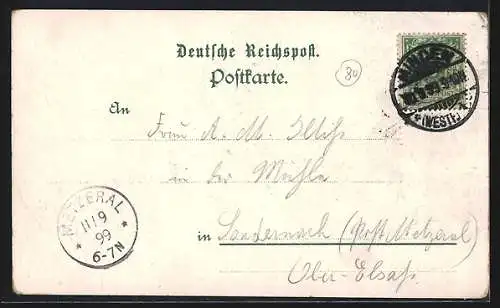 Deutsche Reichspost.
Postkarte.
80
MINDEN
(WESTF)
An
Frau A. M.
in der Mühle
in Sondernach (Post Metzeral)
Ober-Elsaß
METZERAL
11/9
99
6-7N